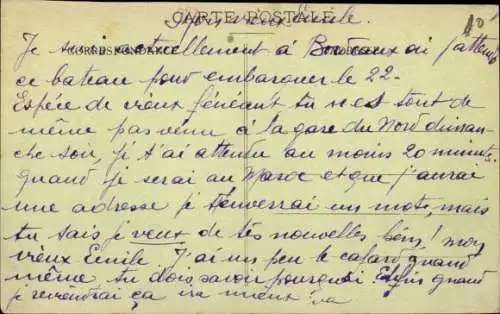 CARTE POSTALE
Mon vieux Emile.
CORRESPONDANCE
Je suis actuellement à Bordeaux où j'attends
ce bateau pour embarquer le 22-
Espèce de vieux fénéant tu n'est tout de
même pas venu à la gare du Nord diman-
che soir, je t'ai attendu au moins 20 minutes.
Quand je serai au Maroc et que j'aurai
une adresse je t'enverrai un mots, mais
tu sais je veux de tes nouvelles hein! mon
vieux Emile J'ai un peu le cafard quand
même, tu dois savoir pourquoi. Enfin quand
je reviendrai ça ira mieux! va